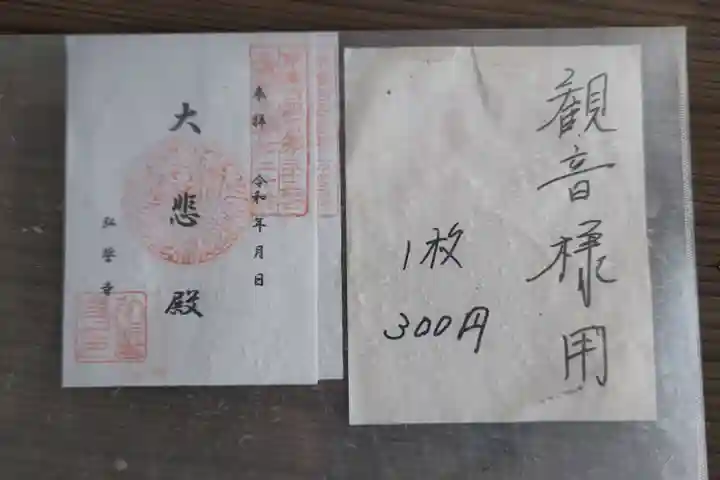 奉拝　令和 年 月 日
大悲殿
弘誓寺
観音様用
1枚
300円